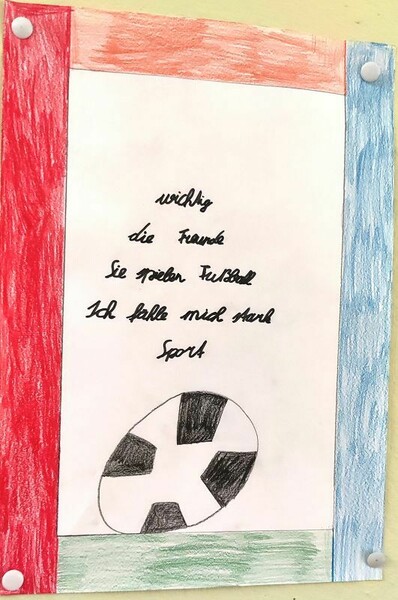 wichtig
die Freunde
Sie spielen Fußball
Ich fühle mich stark
Sport